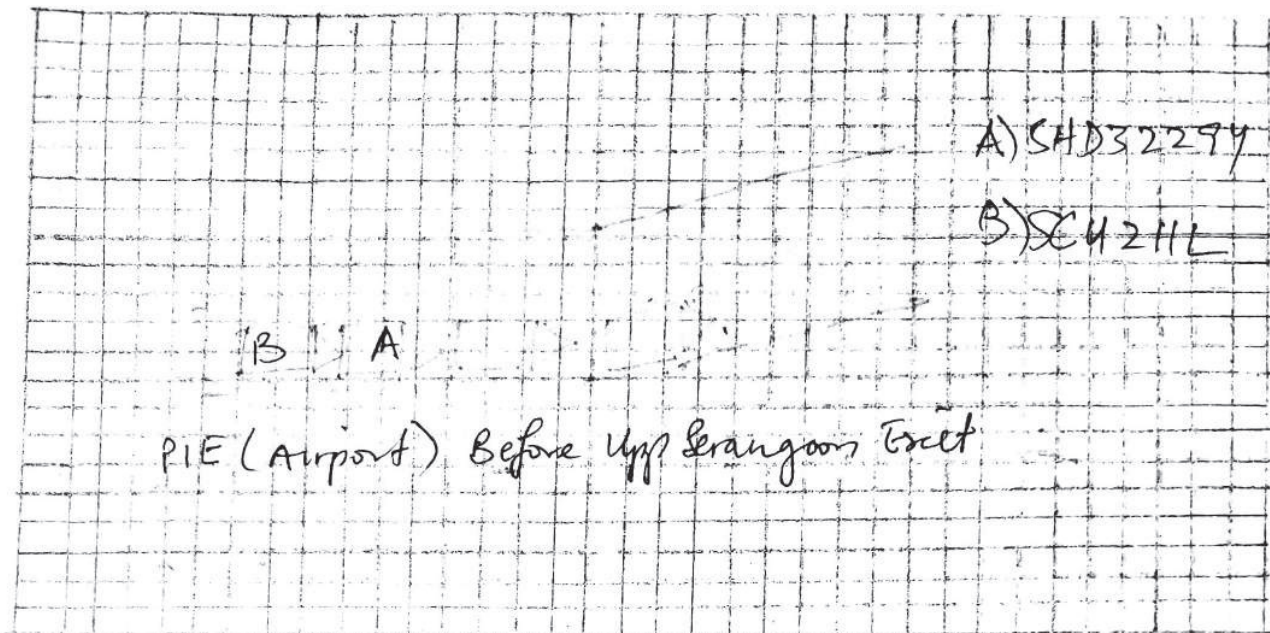 A) SHD3229Y
B) SCU211L
B A
PIE (Airport) Before Upp Serangoon Exit